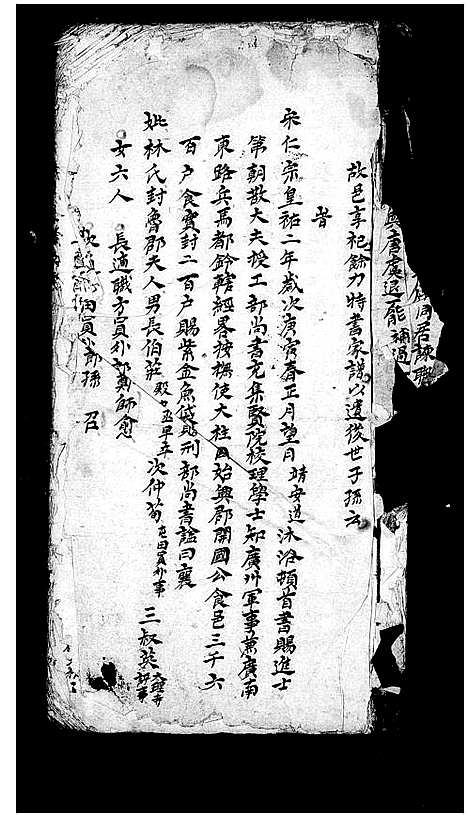 與唐虞退龍補過
故邑享祀餘力特書家譜以遺後世子孫云
昔
宋仁宗皇祐二年歲次庚寅春正月望日靖安道沐浴頓首書賜進士
第朝散大夫授工部尚書充集賢院校理學士知廣州軍事兼廣南
東路兵馬都鈐轄經畧按撫使大柱國始興郡開國公食邑三千六
百户食實封二百户賜紫金魚袋贈刑部尚書諡曰襄
妣林氏封魯郡夫人男長伯莊殿中丞早卒次仲荀屯田員外事三叔英大理寺評事
女六人 長適職方員外郎郭師愈
次適 田員外郎孫 召